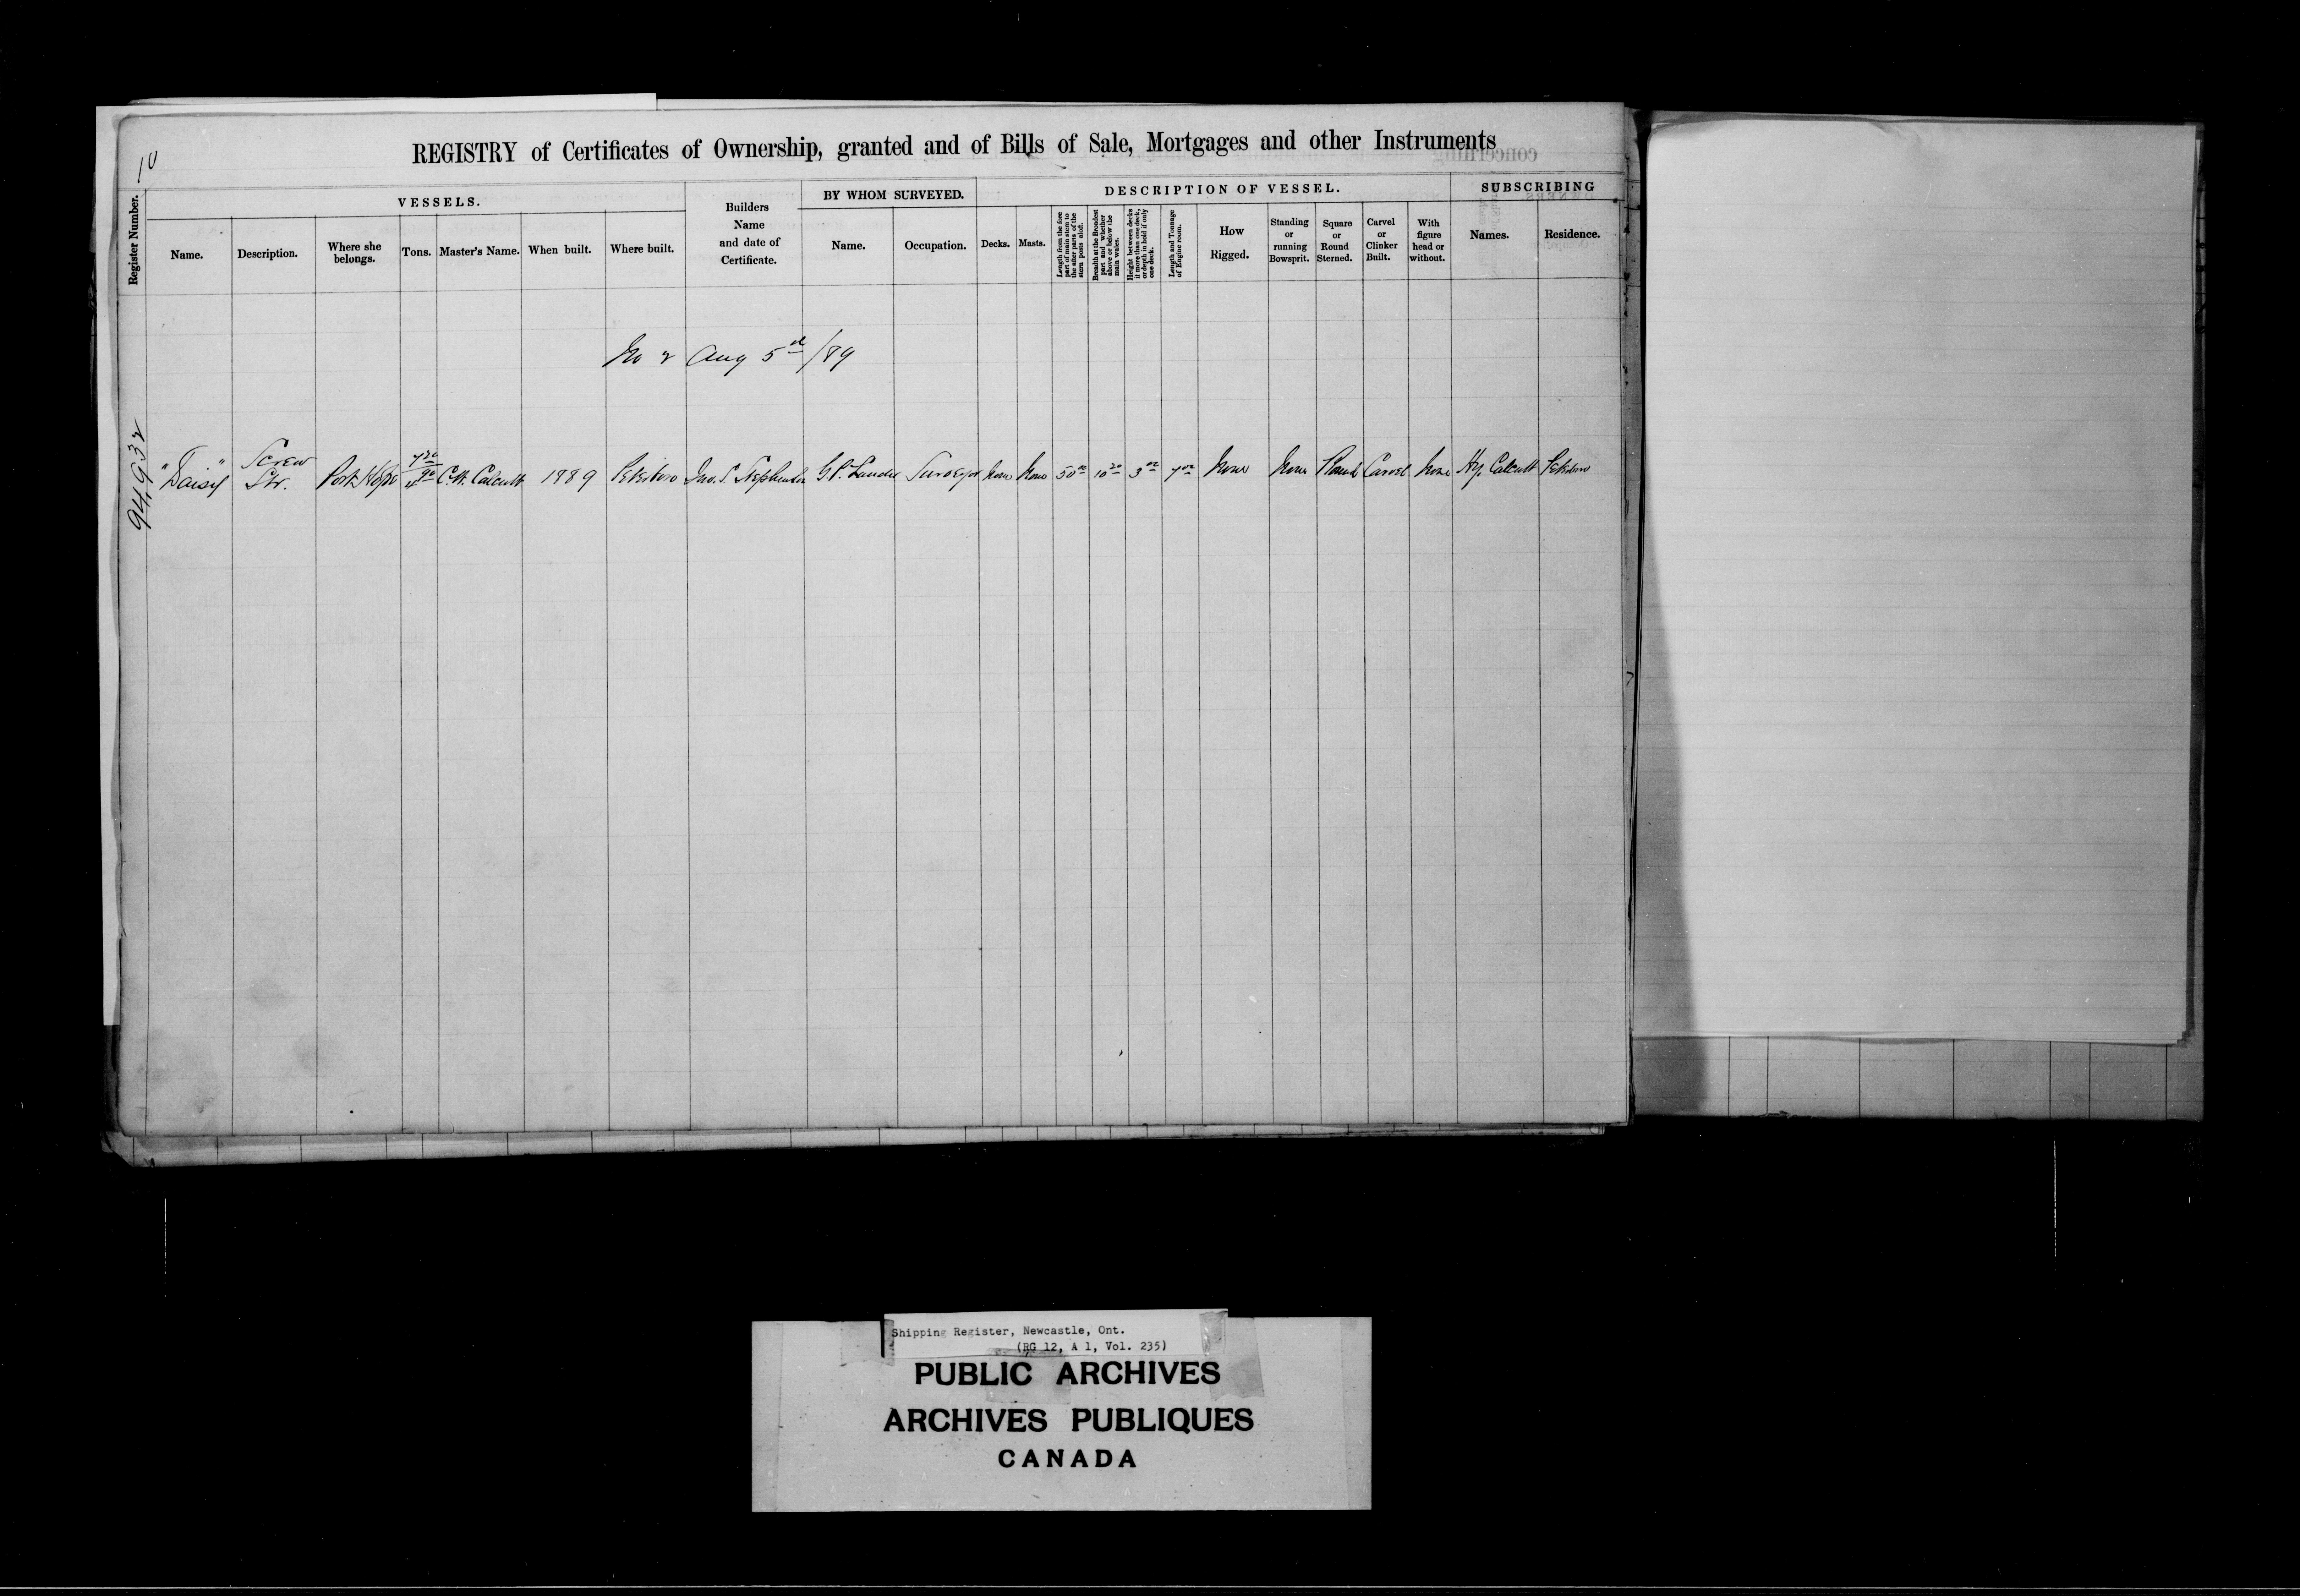 10
REGISTRY of Certificates of Ownership, granted and of Bills of Sale, Mortgages and other Instruments
concerning
Register Number.
VESSELS.
Name.
Description.
Where she belongs.
Tons.
Master's Name.
When built.
Where built.
Builders Name and date of Certificate.
BY WHOM SURVEYED.
Name.
Occupation.
DESCRIPTION OF VESSEL.
Decks.
Masts.
Length from the fore part of main stem to the after parts of the stern posts aloft.
Breadth at the Broadest part and whether above or below the main wales.
Height between decks if more than one deck, or depth in hold if only one deck.
Length and Tonnage of Engine room.
How Rigged.
Standing or running Bowsprit.
Square or Round Sterned.
Carvel or Clinker Built.
With figure head or without.
SUBSCRIBING
Names.
Residence.
No 2 Aug 5th /89
94,932
"Daisy" Screw Str. Port Hope C.H. Calcutt 1889 Peterboro Jno. S. Stephenson Surveyor None None 50 10 3 7 None None Round Carvel None Hy. Calcutt Peterboro
Shipping Register, Newcastle, Ont.
(RG 12, A 1, Vol. 235)
PUBLIC ARCHIVES
ARCHIVES PUBLIQUES
CANADA